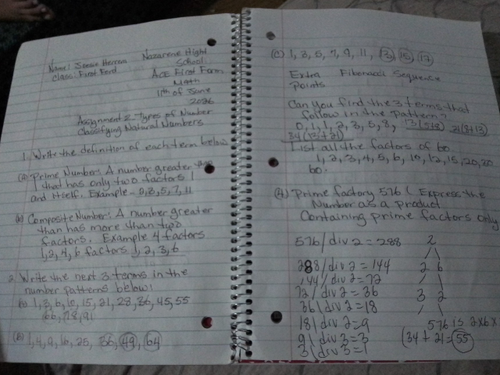 Name:
Nazarene High
School
Class: First Ford
Ace First Form
Math
11th of June
Assignment 2 - Types of Number
Classifying Natural Numbers
1. Write the definition of each term below
(a) Prime Number: A number greater
that has only two factors 1
and itself. Example - 2, 3, 5, 7, 11
(b) Composite Number: A number greater
than has more than two
factors. Example 4 factors
1, 2, 4, 6 factors 1, 2, 3, 6
2. Write the next 3 terms in the
number patterns below:
1, 3, 6, 10, 15, 21, 28, 36, 45, 55
66, 78, 91
(b) 1, 4, 9, 16, 25, 36, 49, 64
(c) 1, 3, 5, 7, 9, 11, 13, 15, 17
Extra Fibonacci Sequence
Points
Can you find the 3 terms that
follow in the pattern?
0, 1, 1, 2, 3, 5, 8, 13(5+8) 21(8+13)
34(13+21)
List all the factors of 60
1, 2, 3, 4, 5, 6, 10, 12, 15, 20, 30
60.
(4) Prime factory 576 (Express the
Number as a product
Containing prime factors only
576/div 2 = 288 2
288/div 2 = 144
144/div 2 = 72 2 6
72/div 2 = 36
36/div 2 = 18 3 2
18/div 2 = 9
576 is 2x6x
9/div 3 = 3
(34 + 21 = 55
3/div 3 = 1